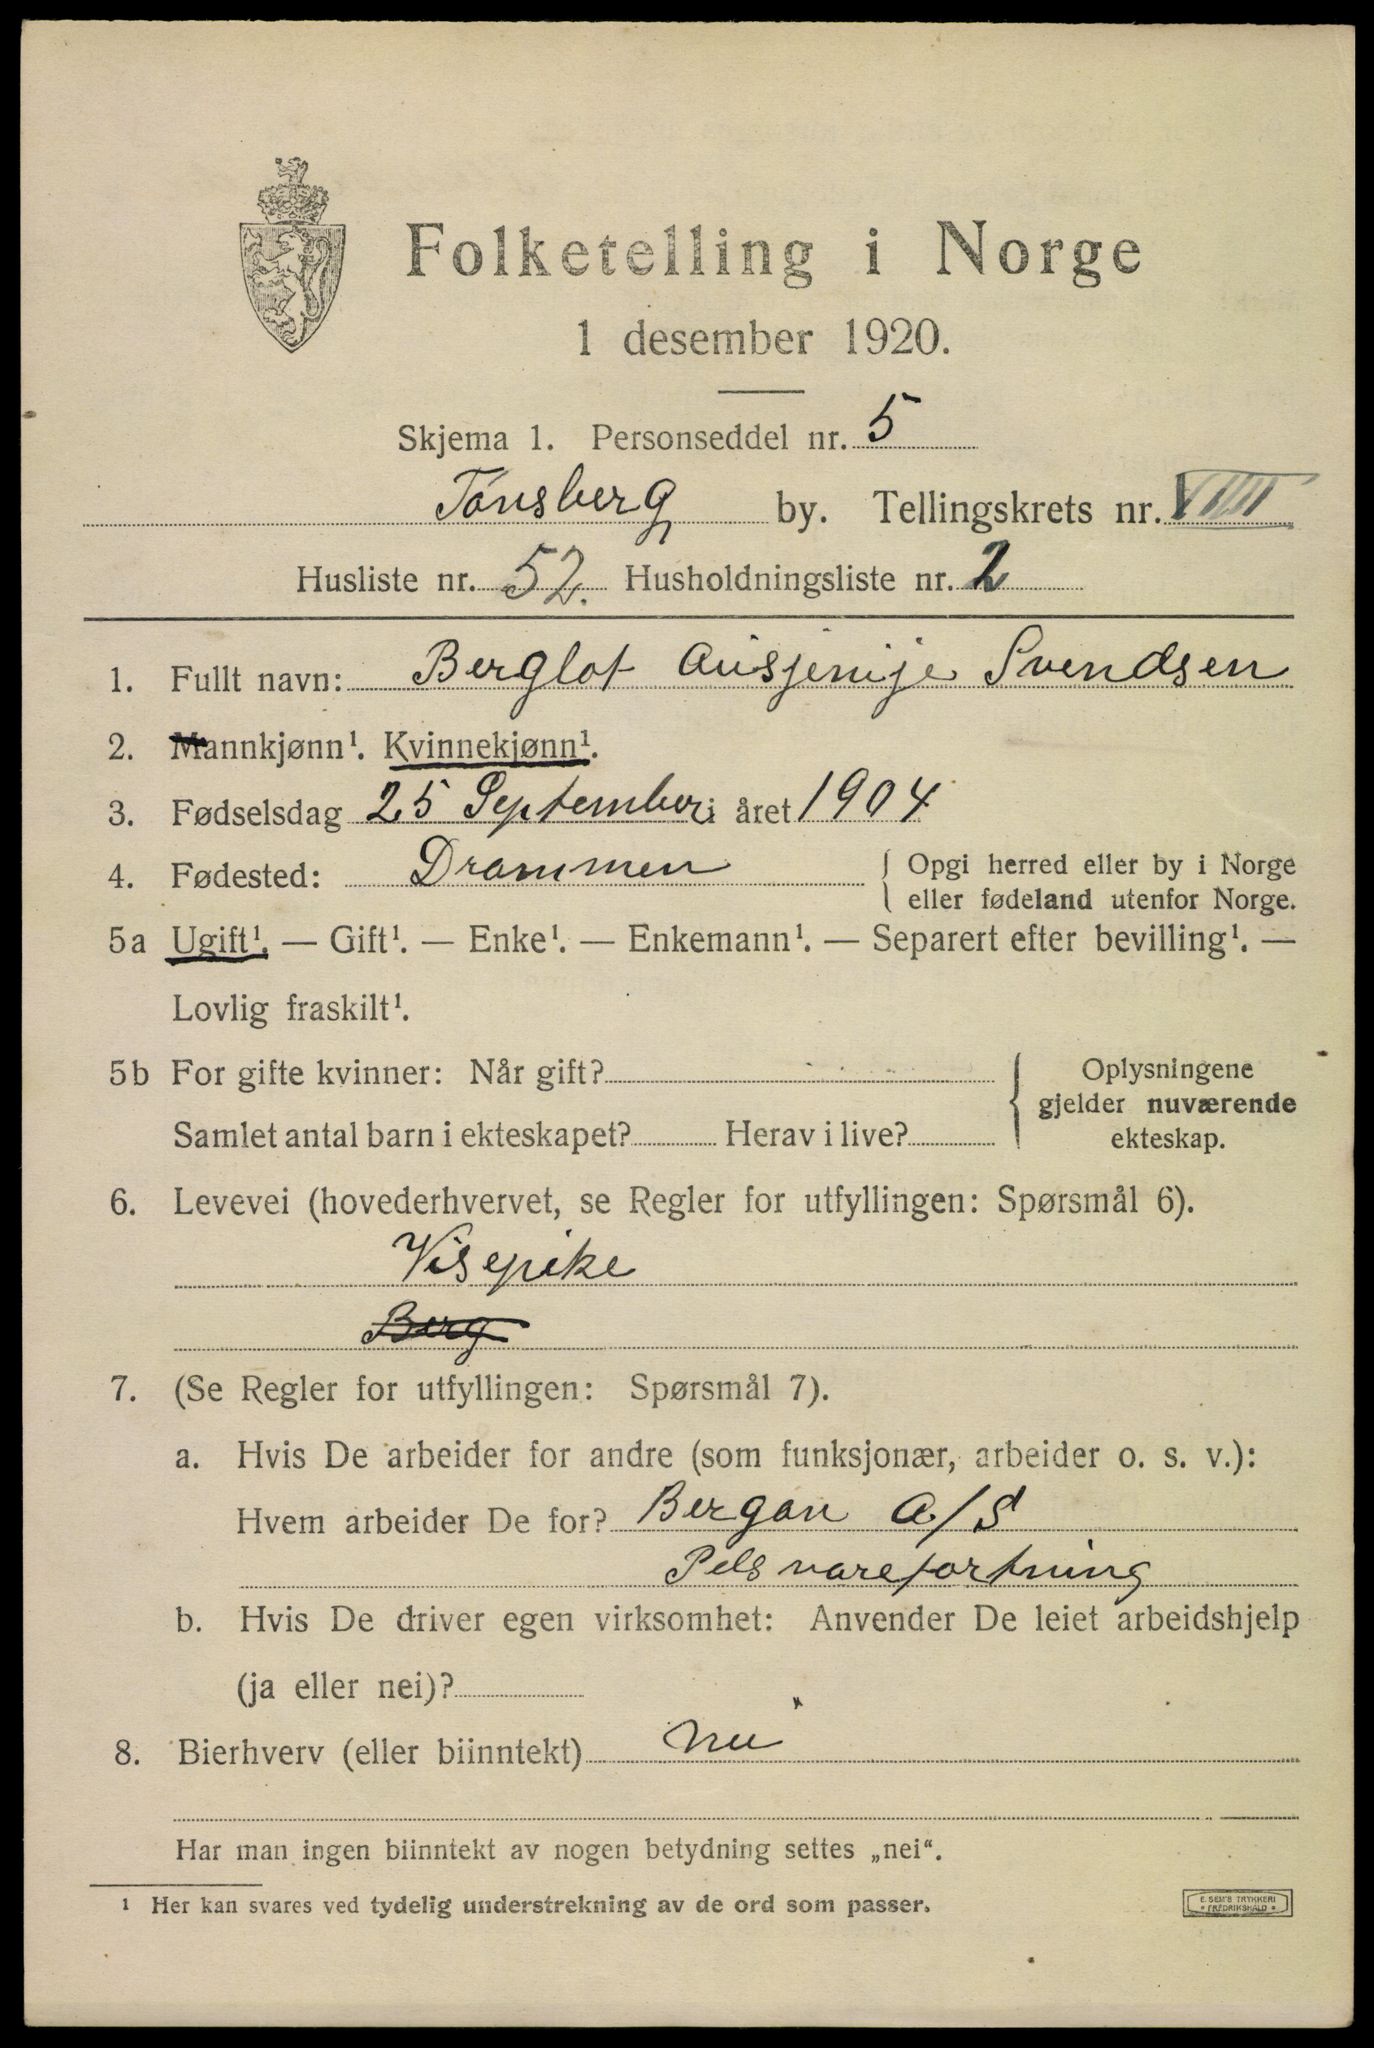 Folketelling i Norge
1 desember 1920.
Skjema 1. Personseddel nr. 5
Tønsberg by. Tellingskrets nr. VIII
Husliste nr. 52. Husholdningsliste nr. 2
1. Fullt navn: Berglot Svendsen
2. Mannkjønn¹. Kvinnekjønn¹.
3. Fødselsdag 25 September i året 1904
4. Fødested: Drammen { Opgi herred eller by i Norge
eller fødeland utenfor Norge.
5a Ugift¹. — Gift¹. — Enke¹. — Enkemann¹. — Separert efter bevilling¹. —
Lovlig fraskilt¹.
5b For gifte kvinner: Når gift?
Samlet antal barn i ekteskapet? Herav i live?
Oplysningene
gjelder nuværende
ekteskap.
6. Levevei (hovederhvervet, se Regler for utfyllingen: Spørsmål 6).
Visepike
Berg
7. (Se Regler for utfyllingen: Spørsmål 7).
a. Hvis De arbeider for andre (som funksjonær, arbeider o. s. v.):
Hvem arbeider De for? Bergan A/S
Pelsvarefortning
b. Hvis De driver egen virksomhet: Anvender De leiet arbeidshjelp
(ja eller nei)?
8. Bierhverv (eller biinntekt) nei
Har man ingen biinntekt av nogen betydning settes „nei“.
¹ Her kan svares ved tydelig understrekning av de ord som passer.
E. SEM'S TRYKKERI
* FREDRIKSHALD *